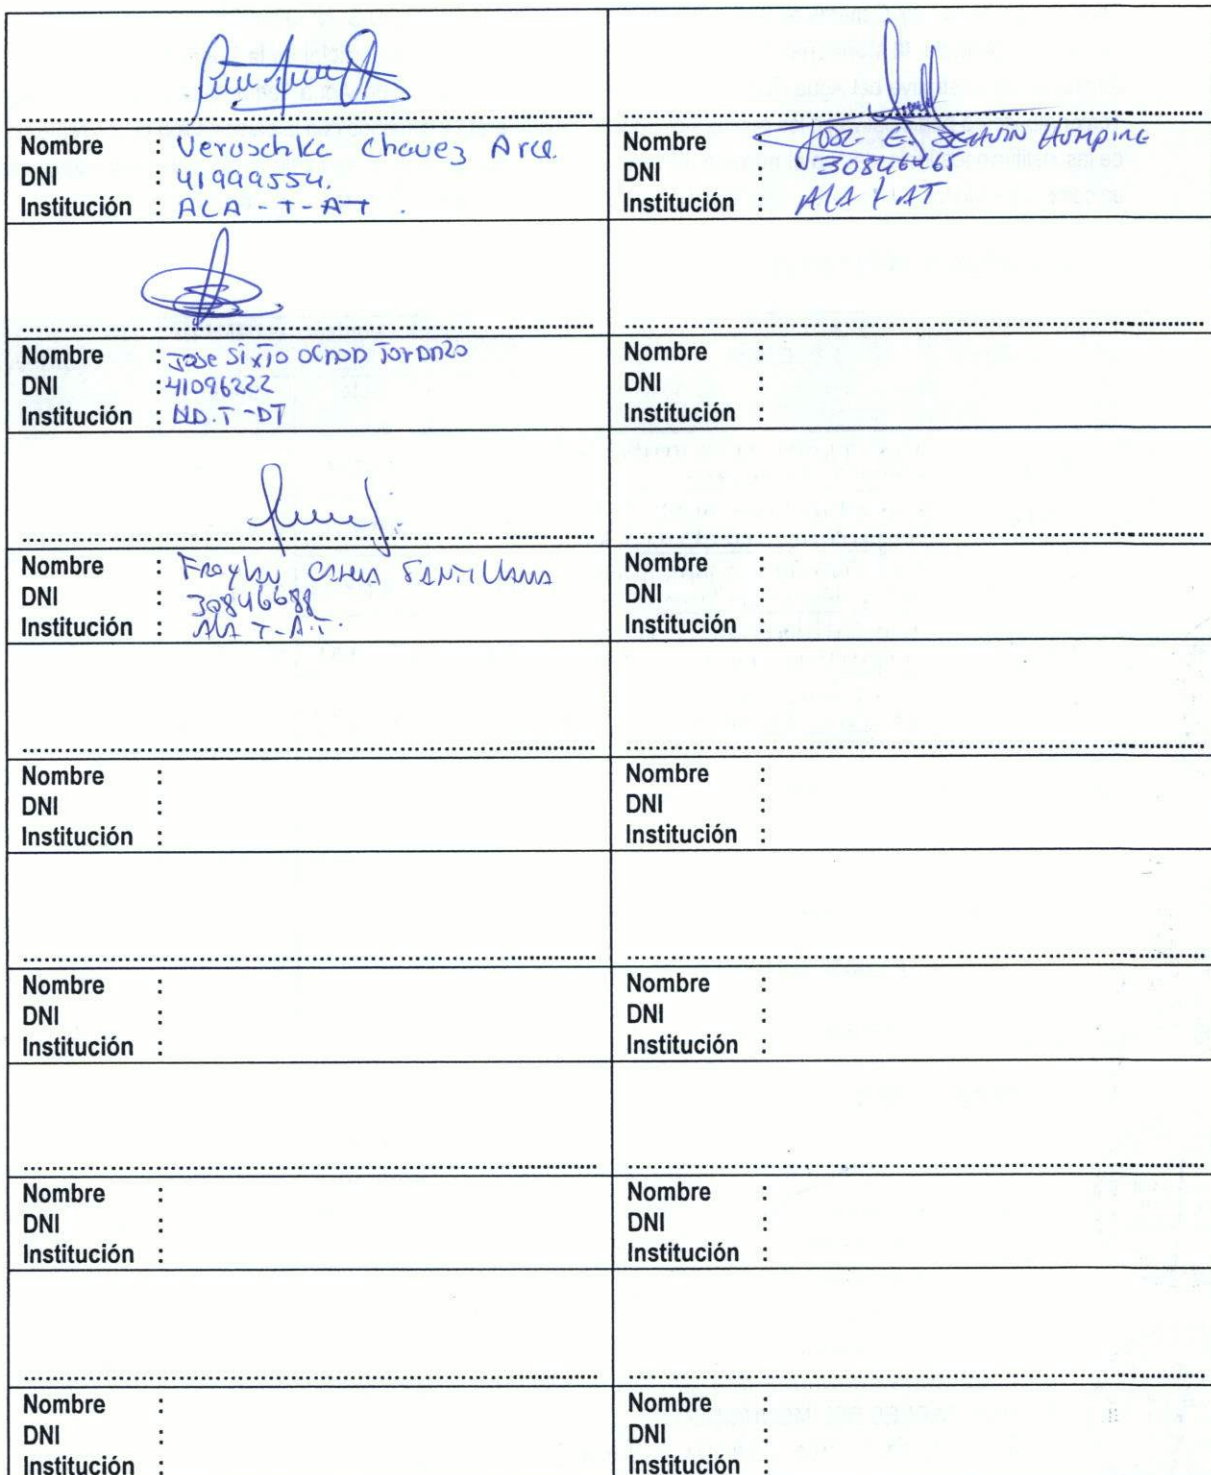 Nombre : Veruschka Chavez Arce.
DNI : 41999554.
Institución : ALA - T - AT .
Nombre : JOSE E. Humpire
DNI : 30846465
Institución : ALA T AT
Nombre : Jose Sixto Ochoa Jordnzo
DNI : 41096222
Institución : T-DT
Nombre :
DNI :
Institución :
Nombre : Santillana
DNI : 30846688
Institución : ALA T-A.T.
Nombre :
DNI :
Institución :
Nombre :
DNI :
Institución :
Nombre :
DNI :
Institución :
Nombre :
DNI :
Institución :
Nombre :
DNI :
Institución :
Nombre :
DNI :
Institución :
Nombre :
DNI :
Institución :
Nombre :
DNI :
Institución :
Nombre :
DNI :
Institución :